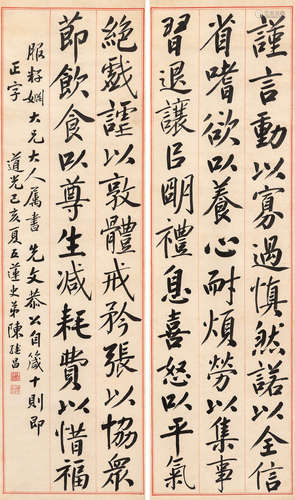 謹言動以寡過慎然諾以全信
省嗜欲以養心耐煩勞以集事
習退讓以明禮息喜怒以平氣
絕戲謔以敦體戒矜張以協眾
節飲食以尊生減耗費以惜福
服籽姻大兄大人屬書 先文恭公自箴十則即
正字
道光己亥夏五蓮史弟陳繼昌